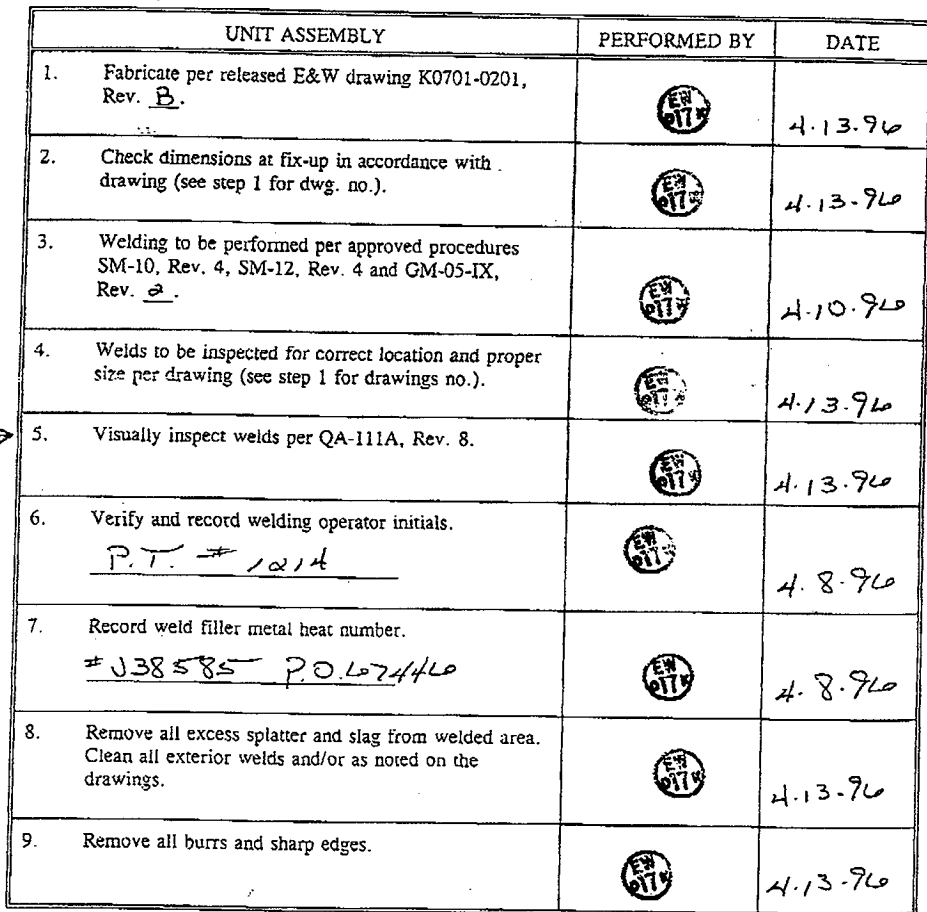 UNIT ASSEMBLY PERFORMED BY DATE
1. Fabricate per released E&W drawing K0701-0201,
Rev. B.
EW
017K
4.13.96
2. Check dimensions at fix-up in accordance with
drawing (see step 1 for dwg. no.).
EW
017K
4.13.96
3. Welding to be performed per approved procedures
SM-10, Rev. 4, SM-12, Rev. 4 and GM-05-IX,
Rev. 2.
EW
017K
4.10.96
4. Welds to be inspected for correct location and proper
size per drawing (see step 1 for drawings no.).
EW
4.13.96
5. Visually inspect welds per QA-111A, Rev. 8.
EW
017K
4.13.96
6. Verify and record welding operator initials.
P.T. # 1214
EW
017K
4.8.96
7. Record weld filler metal heat number.
#J38585 P.O.67446
EW
017K
4.8.96
8. Remove all excess splatter and slag from welded area.
Clean all exterior welds and/or as noted on the
drawings.
EW
017K
4.13.96
9. Remove all burrs and sharp edges.
EW
017K
4.13.96